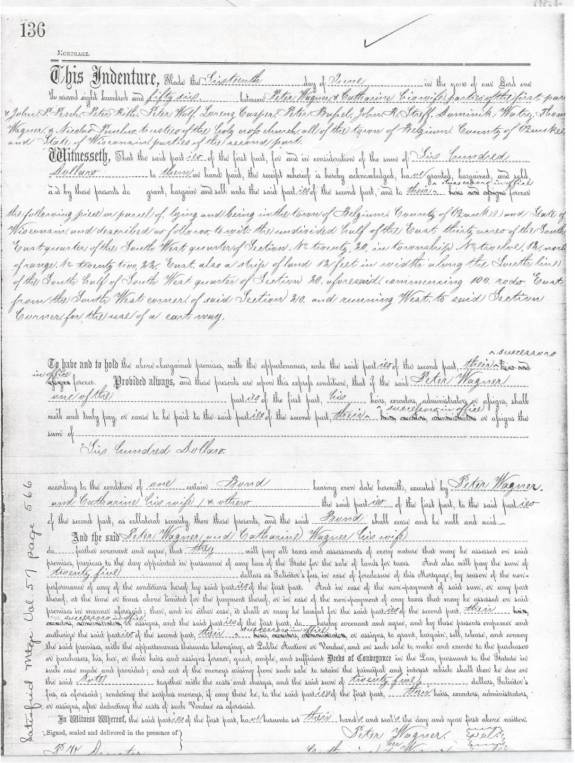 136
MORTGAGE.
This Indenture, Made this Sixteenth day of June in the year of our Lord one
thousand eight hundred and fifty six between Peter Wagner & Catharine his wife parties of the first part
& John P. Peter Roth, Peter Wolf, Lorenz Peter John Dominik Thom
Wagner & Nicolas trustees of the Holy cross church all of the town of Belgium County of Ozaukee
and State of Wisconsin parties of the second part
Witnesseth, That the said parties of the first part, for and in consideration of the sum of Six hundred
Dollars to them in hand paid, the receipt whereof is hereby acknowledged, have granted, bargained, and sold,
and by these presents do grant, bargain and sell unto the said parties of the second part, and to their successors in office forever
the following piece or parcel of lying and being in the town of Belgium County of Ozaukee and State of
Wisconsin and described as follows to wit the undivided half of the East thirty acres of the South
East quarter of the South West quarter of Section No twenty 20 in township No twelve 12 north
of range No twenty two 22 East also a strip of land 12 feet in width along the South line
of the South half of South West quarter of Section 20 aforesaid commencing 100 rods East
from the South West corner of said Section 20 and running West to said Section
Corner for the use of a cart way.
& successors
To have and to hold the above bargained premises, with the appurtenances, unto the said parties of the second part, their
in office forever. Provided always, and these presents are upon this express condition, that if the said Peter Wagner
one of the parties of the first part, his heirs, executors, administrators or assigns, shall
well and truly pay or cause to be paid to the said parties of the second part, their successors in office or assigns the
sum of
Six hundred Dollars
according to the condition of one certain Bond bearing even date herewith, executed by Peter Wagner
and Catharine his wife & others the said parties of the first part, to the said parties
of the second part, as collateral security, then these presents, and the said Bond shall cease and be null and void.
And the said Peter Wagner and Catharine Wagner his wife
do further covenant and agree, that they will pay all taxes and assessments of every nature that may be assessed on said
premises, previous to the day appointed in pursuance of any law of the State for the sale of lands for taxes. And also will pay the sum of
twenty five dollars as Solicitor's fees, in case of foreclosure of this Mortgage, by reason of the non-
performance of any of the conditions hereof by said parties of the first part. And in case of the non-payment of said sum, or any part
thereof, at the time or times above limited for the payment thereof, or in case of the non-payment of any taxes that may be assessed on said
premises in manner aforesaid; then, and in either case, it shall or may be lawful for the said parties of the second part their heirs,
successors in office
executors, administrators, or assigns, and the said parties of the first part, do hereby covenant and agree, and by these presents empower and
authorize the said parties of the second part, their successors in office or assigns, to grant, bargain, sell, release, and convey
the said premises, with the appurtenances thereunto belonging, at Public Auction or Vendue, and on such sale to make and execute to the purchaser
or purchasers, his, her, or their heirs and assigns forever, good, ample, and sufficient Deed of Conveyance in the Law, pursuant to the Statute in
such case made and provided; and out of the moneys arising from such sale to retain the principal and interest which shall then be due on
the said Note together with the costs and charges, and the said sum of twenty five dollars, Solicitor's
fees, as aforesaid; rendering the surplus moneys, if any there be, to the said parties of the first part, their heirs, executors, administrators,
or assigns, after deducting the costs of such Vendue as aforesaid.
In Witness Whereof, the said parties of the first part, have hereunto set their hands and seals, the day and year first above written.
Signed, sealed and delivered in the presence of
Peter Wagner
Satisfied Mtge Vol 57 page 566